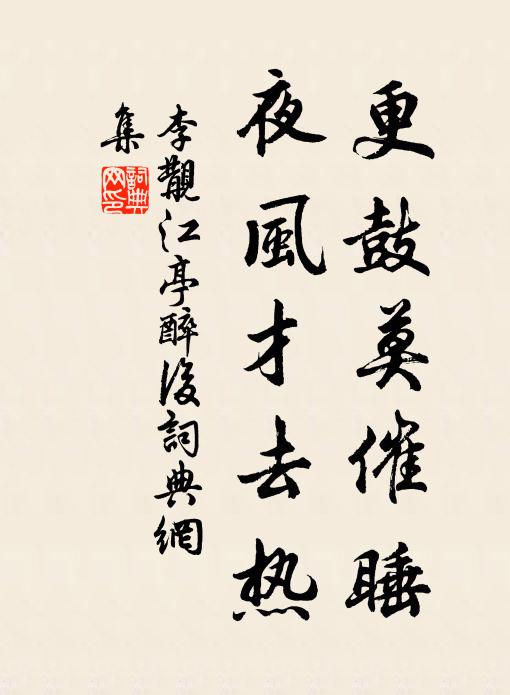 更鼓莫催睡
夜風才去热
李觀江亭醉後詞典網
集
詞典
网印